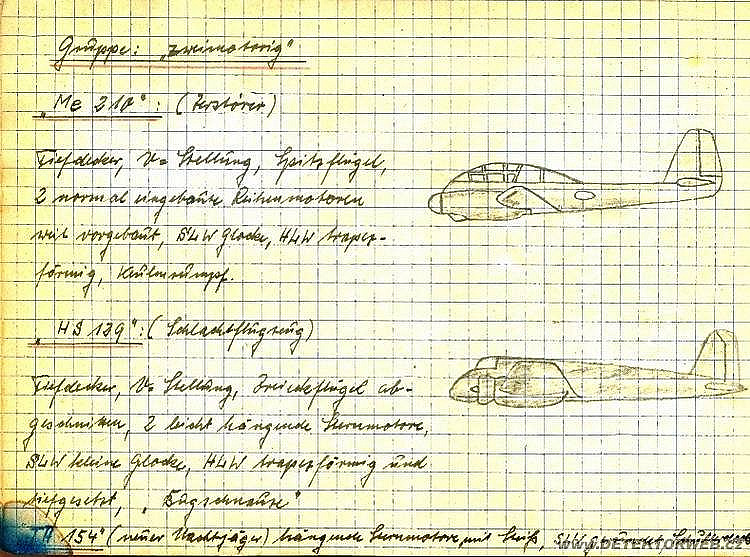 Gruppe: „zweimotorig"
„Me 210": (Zerstörer)
Tiefdecker, V-Stellung, Spitzflügel,
2 normal eingebaute Reihenmotoren
weit vorgebaut, SLW Glocke, HLW trapez-
förmig, Keulenrumpf.
„HS 129": (Schlachtflugzeug)
Tiefdecker, V-Stellung, Dreieckflügel ab-
geschnitten, 2 leicht hängende Sternmotore,
SLW kleine Glocke, HLW trapezförmig und
tiefgesetzt, „Sägschnauze"
154" (neuer Nachtjäger) hängende Sternmotore, mit SLW
WWW.DETEKTORWEB.CZ